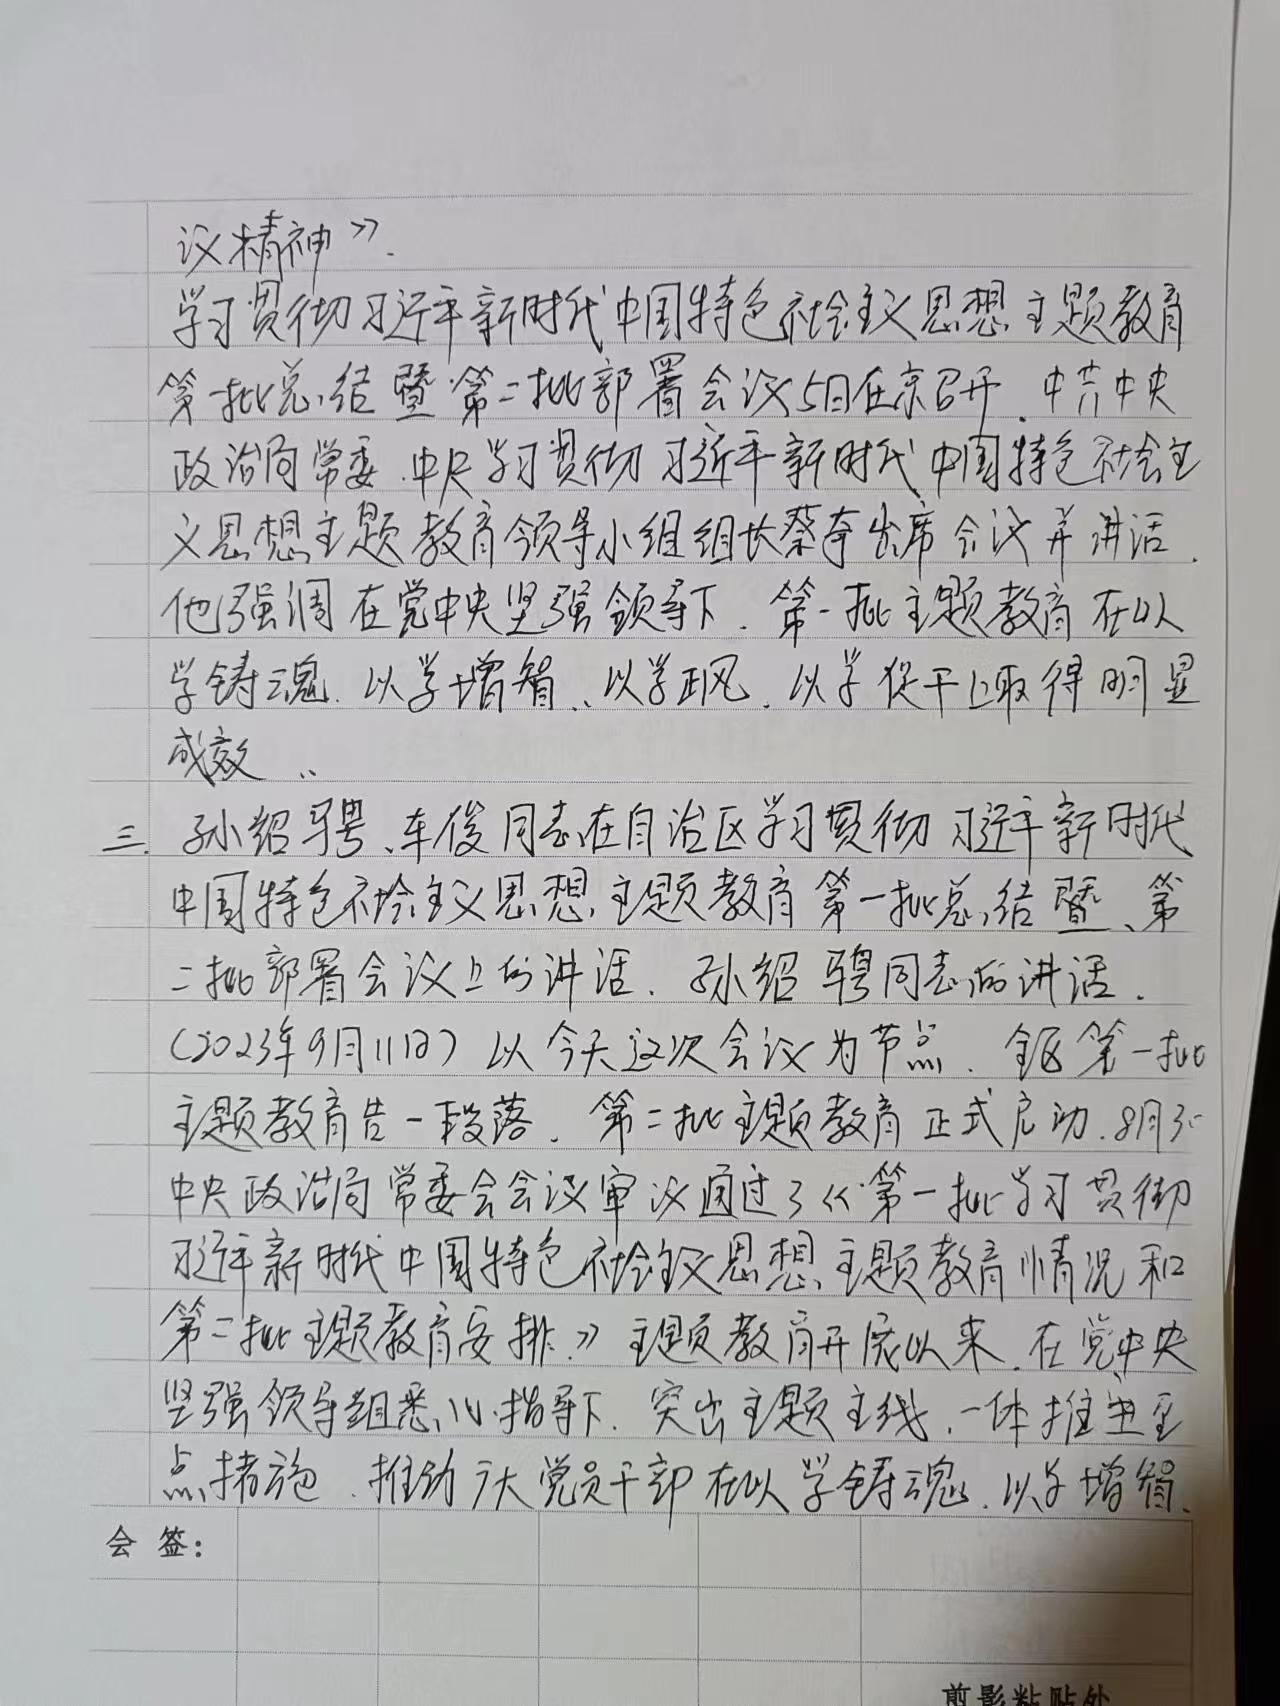 议精神》.
学习贯彻习近平新时代中国特色社会主义思想主题教育
第一批总结暨第二批部署会议5日在京召开.中共中央
政治局常委.中央学习贯彻习近平新时代中国特色社会主
义思想主题教育领导小组组长蔡奇出席会议并讲话.
他强调在党中央坚强领导下.第一批主题教育在以
学铸魂.以学增智、以学正风.以学促干上取得明显
成效..
三.孙绍骋、车俊同志在自治区学习贯彻习近平新时代
中国特色社会主义思想主题教育第一批总结暨、第
二批部署会议上的讲话.孙绍骋同志的讲话.
(2023年9月11日)以今天这次会议为节点.全区第一批
主题教育告一段落.第二批主题教育正式启动.8月3
中央政治局常委会会议审议通过了《第一批学习贯彻
习近平新时代中国特色社会主义思想主题教育情况和
第二批主题教育安排》主题教育开展以来.在党中央
坚强领导组悉心指导下.突出主题主线.一体推进重
点措施.推动广大党员干部在以学铸魂.以学增智.
会 签:
剪影粘贴处